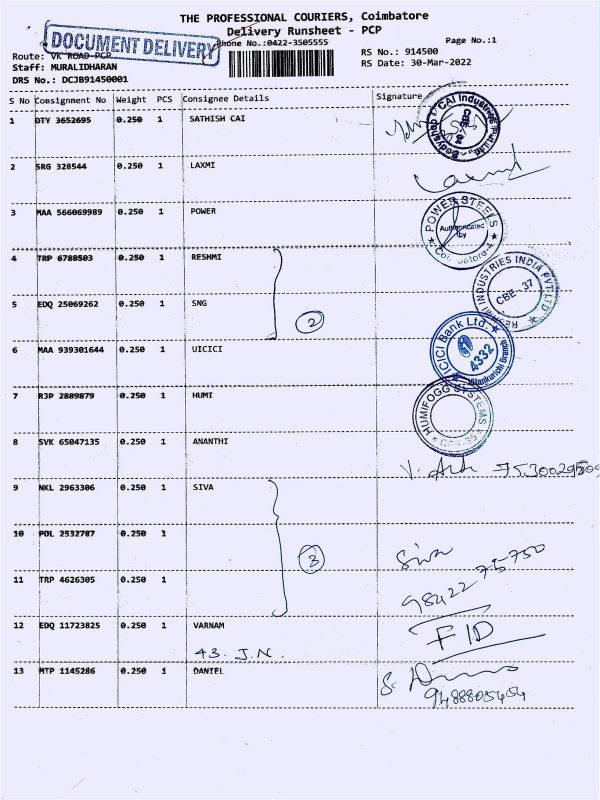 THE PROFESSIONAL COURIERS, Coimbatore
Delivery Runsheet - PCP
DOCUMENT DELIVERY
Phone No.:0422-3505555
Page No.:1
Route: VK ROAD-PCP
RS No.: 914500
Staff: MURALIDHARAN
RS Date: 30-Mar-2022
DRS No.: DCJB91450001
S No Consignment No Weight PCS Consignee Details Signature
1 DTY 3652695 0.250 1 SATHISH CAI
CAI Industries CBE
2 SRG 328544 0.250 1 LAXMI
Laxmi
3 MAA 566069989 0.250 1 POWER
POWER STEELS Authenticated by Coimbatore-4
4 TRP 6788503 0.250 1 RESHMI
INDUSTRIES INDIA PVT LTD CBE-37
5 EDQ 25069262 0.250 1 SNG
2
6 MAA 939301644 0.250 1 UICICI
ICICI Bank Ltd. 4332 Branch
7 RJP 2889879 0.250 1 HUMI
HUMIFOGG SYSTEMS
8 SVK 65047135 0.250 1 ANANTHI
9 NKL 2963306 0.250 1 SIVA
10 POL 2532787 0.250 1
3
Siva
98422 75750
11 TRP 4626305 0.250 1
12 EDQ 11723825 0.250 1 VARNAM
FID
43. J.N.
13 MTP 1145286 0.250 1 DANIEL